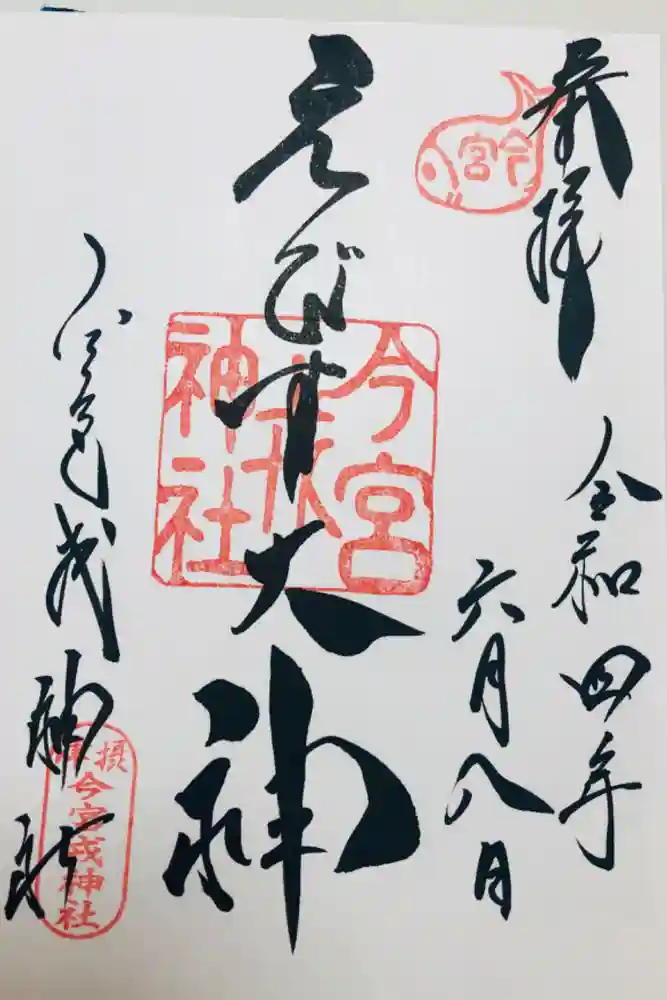 奉拝
今宮
令和四年
六月八日
えびす大神
今宮
戎
神社
今宮戎神社
摂津
今宮戎神社